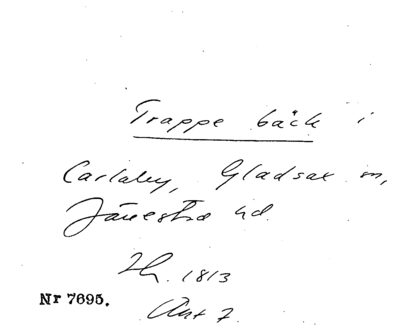 Trappe bäck i
Carlaby, Gladsax sn,
Järrestad hd.
1813
Nr 7695.
Akt 7